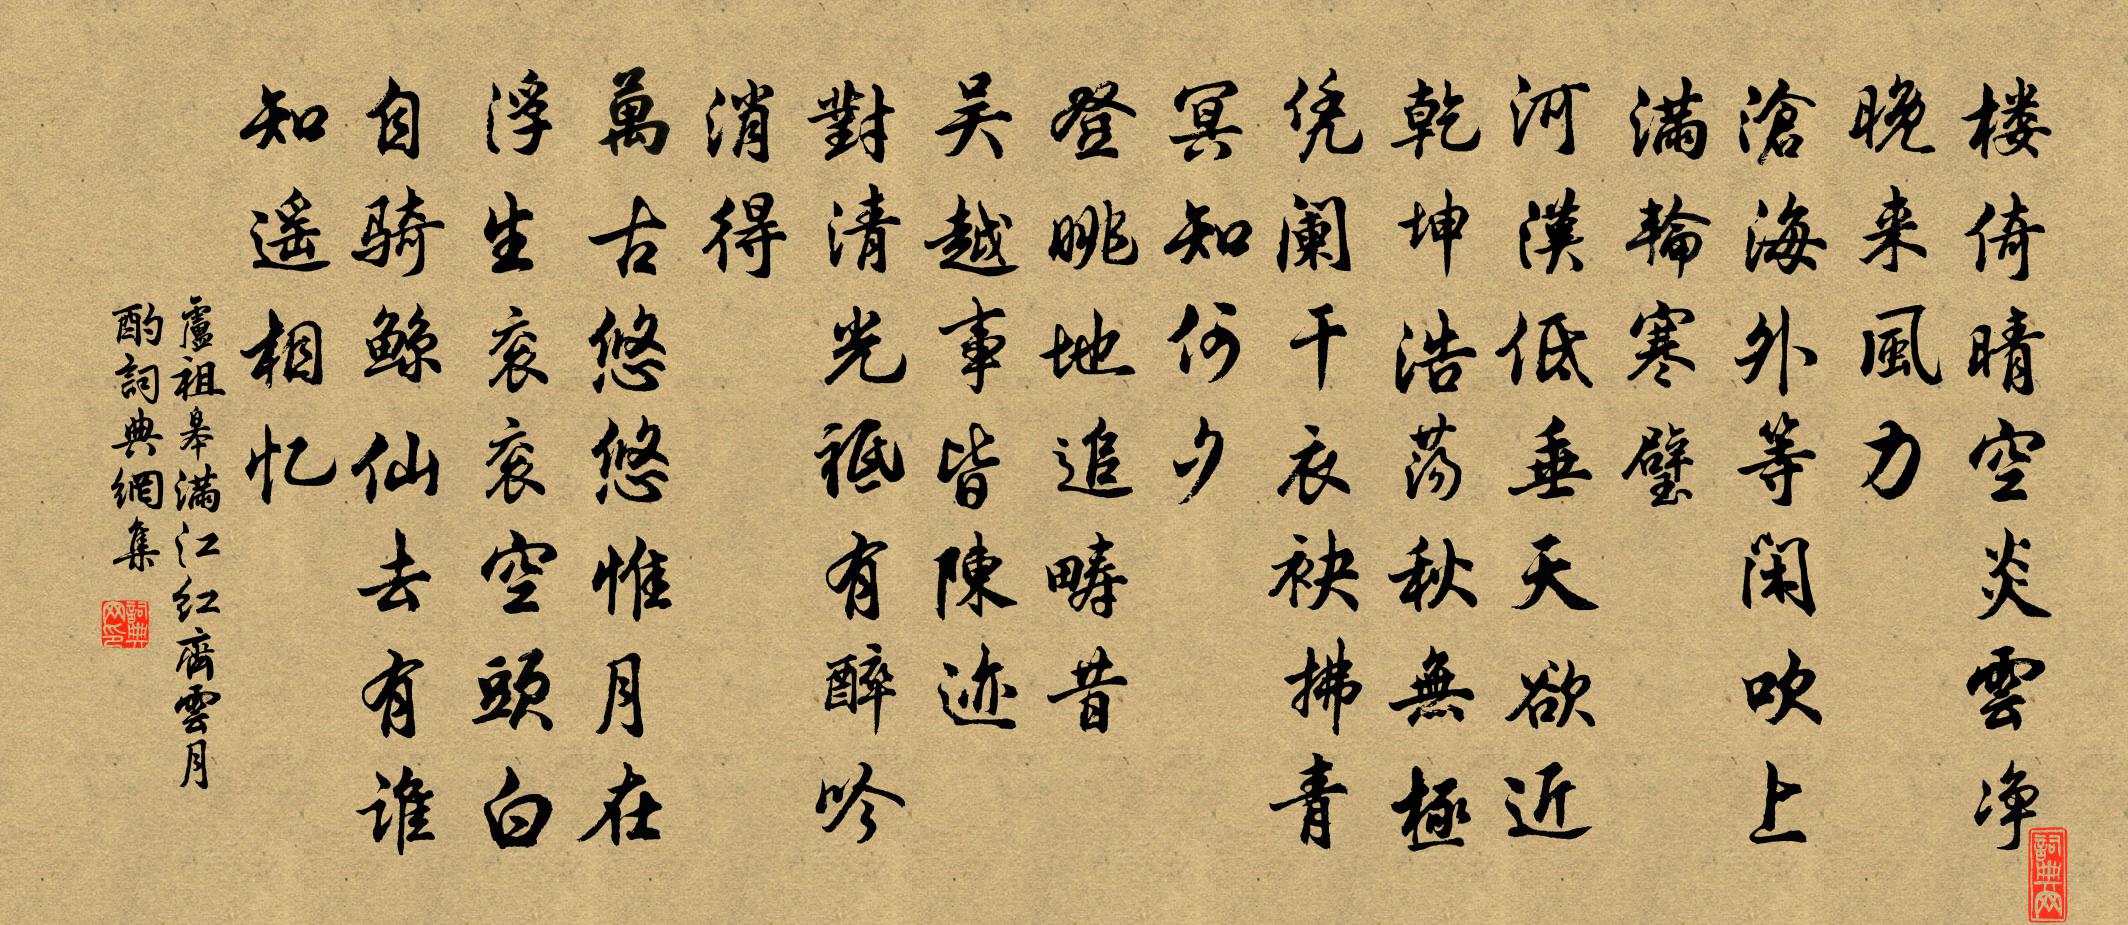 楼倚晴空炎雲净
晚来風力
滄海外等闲吹上
满輪寒璧
河漢低垂天欲近
乾坤浩荡秋無極
凭阑干衣袂拂青
冥知何夕
登眺地追畴昔
吴越事皆陳迹
對清光祗有醉吟
消得
萬古悠悠惟月在
浮生衮衮空頭白
自騎鲸仙去有谁
知遥相忆
盧祖皋满江红齊雲月
酌詞典網集
詞典网印
詞典网